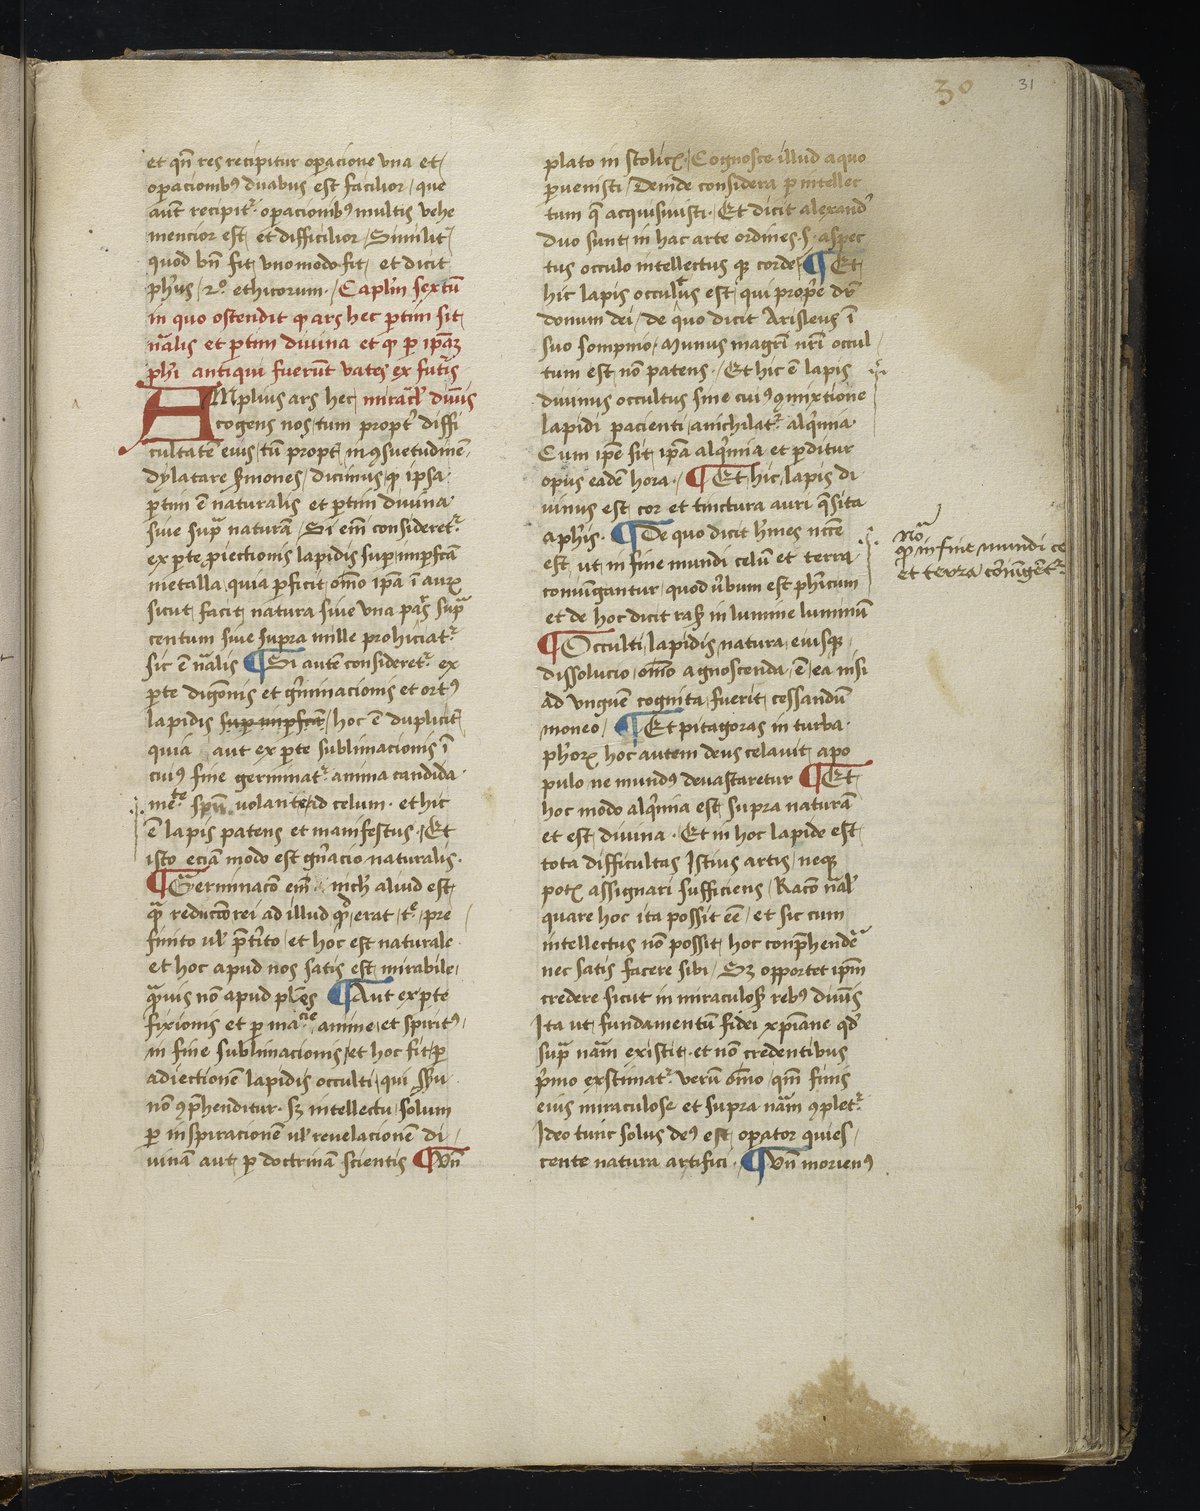 30 31
et qn̄ res recipitur operacione vna et
operacionibꝰ duabus est facilior / que
aūt recipitᷣ operacionibꝰ multis vehe
mencior est et difficilior / Similit̄
quod vn̄ fit vno modo fit et dicit
ph̄us / 2º ethicorum · Caplm̄ sextū
in quo ostendit ꝙ ars hec ꝑtim sit
nālis et ꝑtim diuina et ꝙ ꝑ ip̄aꝫ
ph̄i antiqui fuerūt vates ex fut̄is
AMplius ars hec miracl̄ diuīs
cogens nos tum propt̄ diffi
cultatē eius / tū propt̄ in ꝯsuetudinē
dylatare ẜmones / dicimus ꝙ ipsa
ꝑtim ē naturalis et ꝑtim diuina
siue supᷓ naturā / Si em̄ consideretᷣ
ex ꝑte ꝓiectionis lapidis suꝑ imꝑfcā
metalla quia ꝑficit om̄o ip̄a ī auꝝ
sicut facit natura siue vna pars supᷓ
centum siue supra mille prohiciatᷣ
sic ē nālis ¶ Si autē consideretᷣ ex
ꝑte digōnis et gͥminacionis et ortꝰ
lapidis suꝑ imꝑfcā / hoc ē duplicit̄
quia aut ex ꝑte sublimacionis ī
cuiꝰ fine germinatᷣ anima candida
spū volante ad celum · et hic
ē lapis patens et manifestus · Et
isto eciā modo est gn̄acio naturalis ·
¶ Germinacō em̄ nich̄ aliud est
qᷓ reductō rei ad illud qd̄ erat / pre
finito ul̄ p̄t̄ito / et hoc est naturale
et hoc apud nos satis est mirabile
qᷓuis nō apud pl̄es ¶ Aut ex ꝑte
fixionis et ꝑma animē et spiritꝰ
in fine sublimacionis / et hoc fit ꝑ
adiectionē lapidis occulti / qui sēu
nō ꝯp̄henditur · sꝫ intellectu solum
ꝑ inspiracionē ul̄ reuelacionē di
uinā aut ꝑ doctrinā scientis ¶ Vn̄
plato in stoliꝝ / Cognosce illud a quo
ꝑuenisti / Deinde considera ꝑ intellec
tum qͤ acquisiuisti · Et dicit alexand̄
duo sunt in hac arte ordines · s · aspec
tus occulo intellectus qꝫ corde ¶ Et
hic lapis occultus est / qui propͥe dr̄
donum dei / de quo dicit Arisleus ī
suo sompnio / Munus magr̄i nr̄i occul
tum est nō patens · / Et hic ē lapis
diuinus occultus sine cuiꝰ ꝯmixtione
lapidi pacienti anichilatᷣ alqͥmia
Cum ip̄e sit ip̄a alqͥmia et ꝑditur
opus eadē hora · ¶ Et hic lapis di
uinus est cor et tinctura auri qͤsita
a ph̄is · ¶ De quo dicit h̄mes n̄cc̄e
est ut in fine mundi celū et terra
conuīgantur / quod ūbum est ph̄icum
et de hoc dicit raẜ in lumine luminū
¶ Occulti lapidis natura eiusqꝫ
dissolucio om̄o agnoscenda ē / ea nisi
ad vnguē cognita fuerit cessandū
moneo / ¶ Et pitagoras in turba
ph̄oꝝ hoc autem deus celauit apo
pulo ne mundꝰ deuastaretur ¶ Et
hoc modo alqͥmia est supra naturā
et est diuina · Et in hoc lapide est
tota difficultas Istius artis / neqꝫ
potꝫ assignari sufficiens / Racō nāl̄
quare hoc ita possit eē̄ / et sic cum
intellectus nō possit hoc conp̄hende͛
nec satis facere sibi / Sꝫ opportet ip̄m
credere sicut in miraculoẜ rebꝰ diuīs
Ita ut fundamentū fidei xp̄iane qd̄
supᷓ nām existit · et nō credentibus
pͥmo existimatᷣ verū om̄o / qm̄ finis
eius miraculose et supra nām ꝯpletᷣ
Ideo tunc solus deꝰ est oꝑator quies
cente natura artifici · ¶ Vn̄ morienꝰ
Noᷓ
ꝙ in fine mundi ce
et terra cōiūgētᷣ